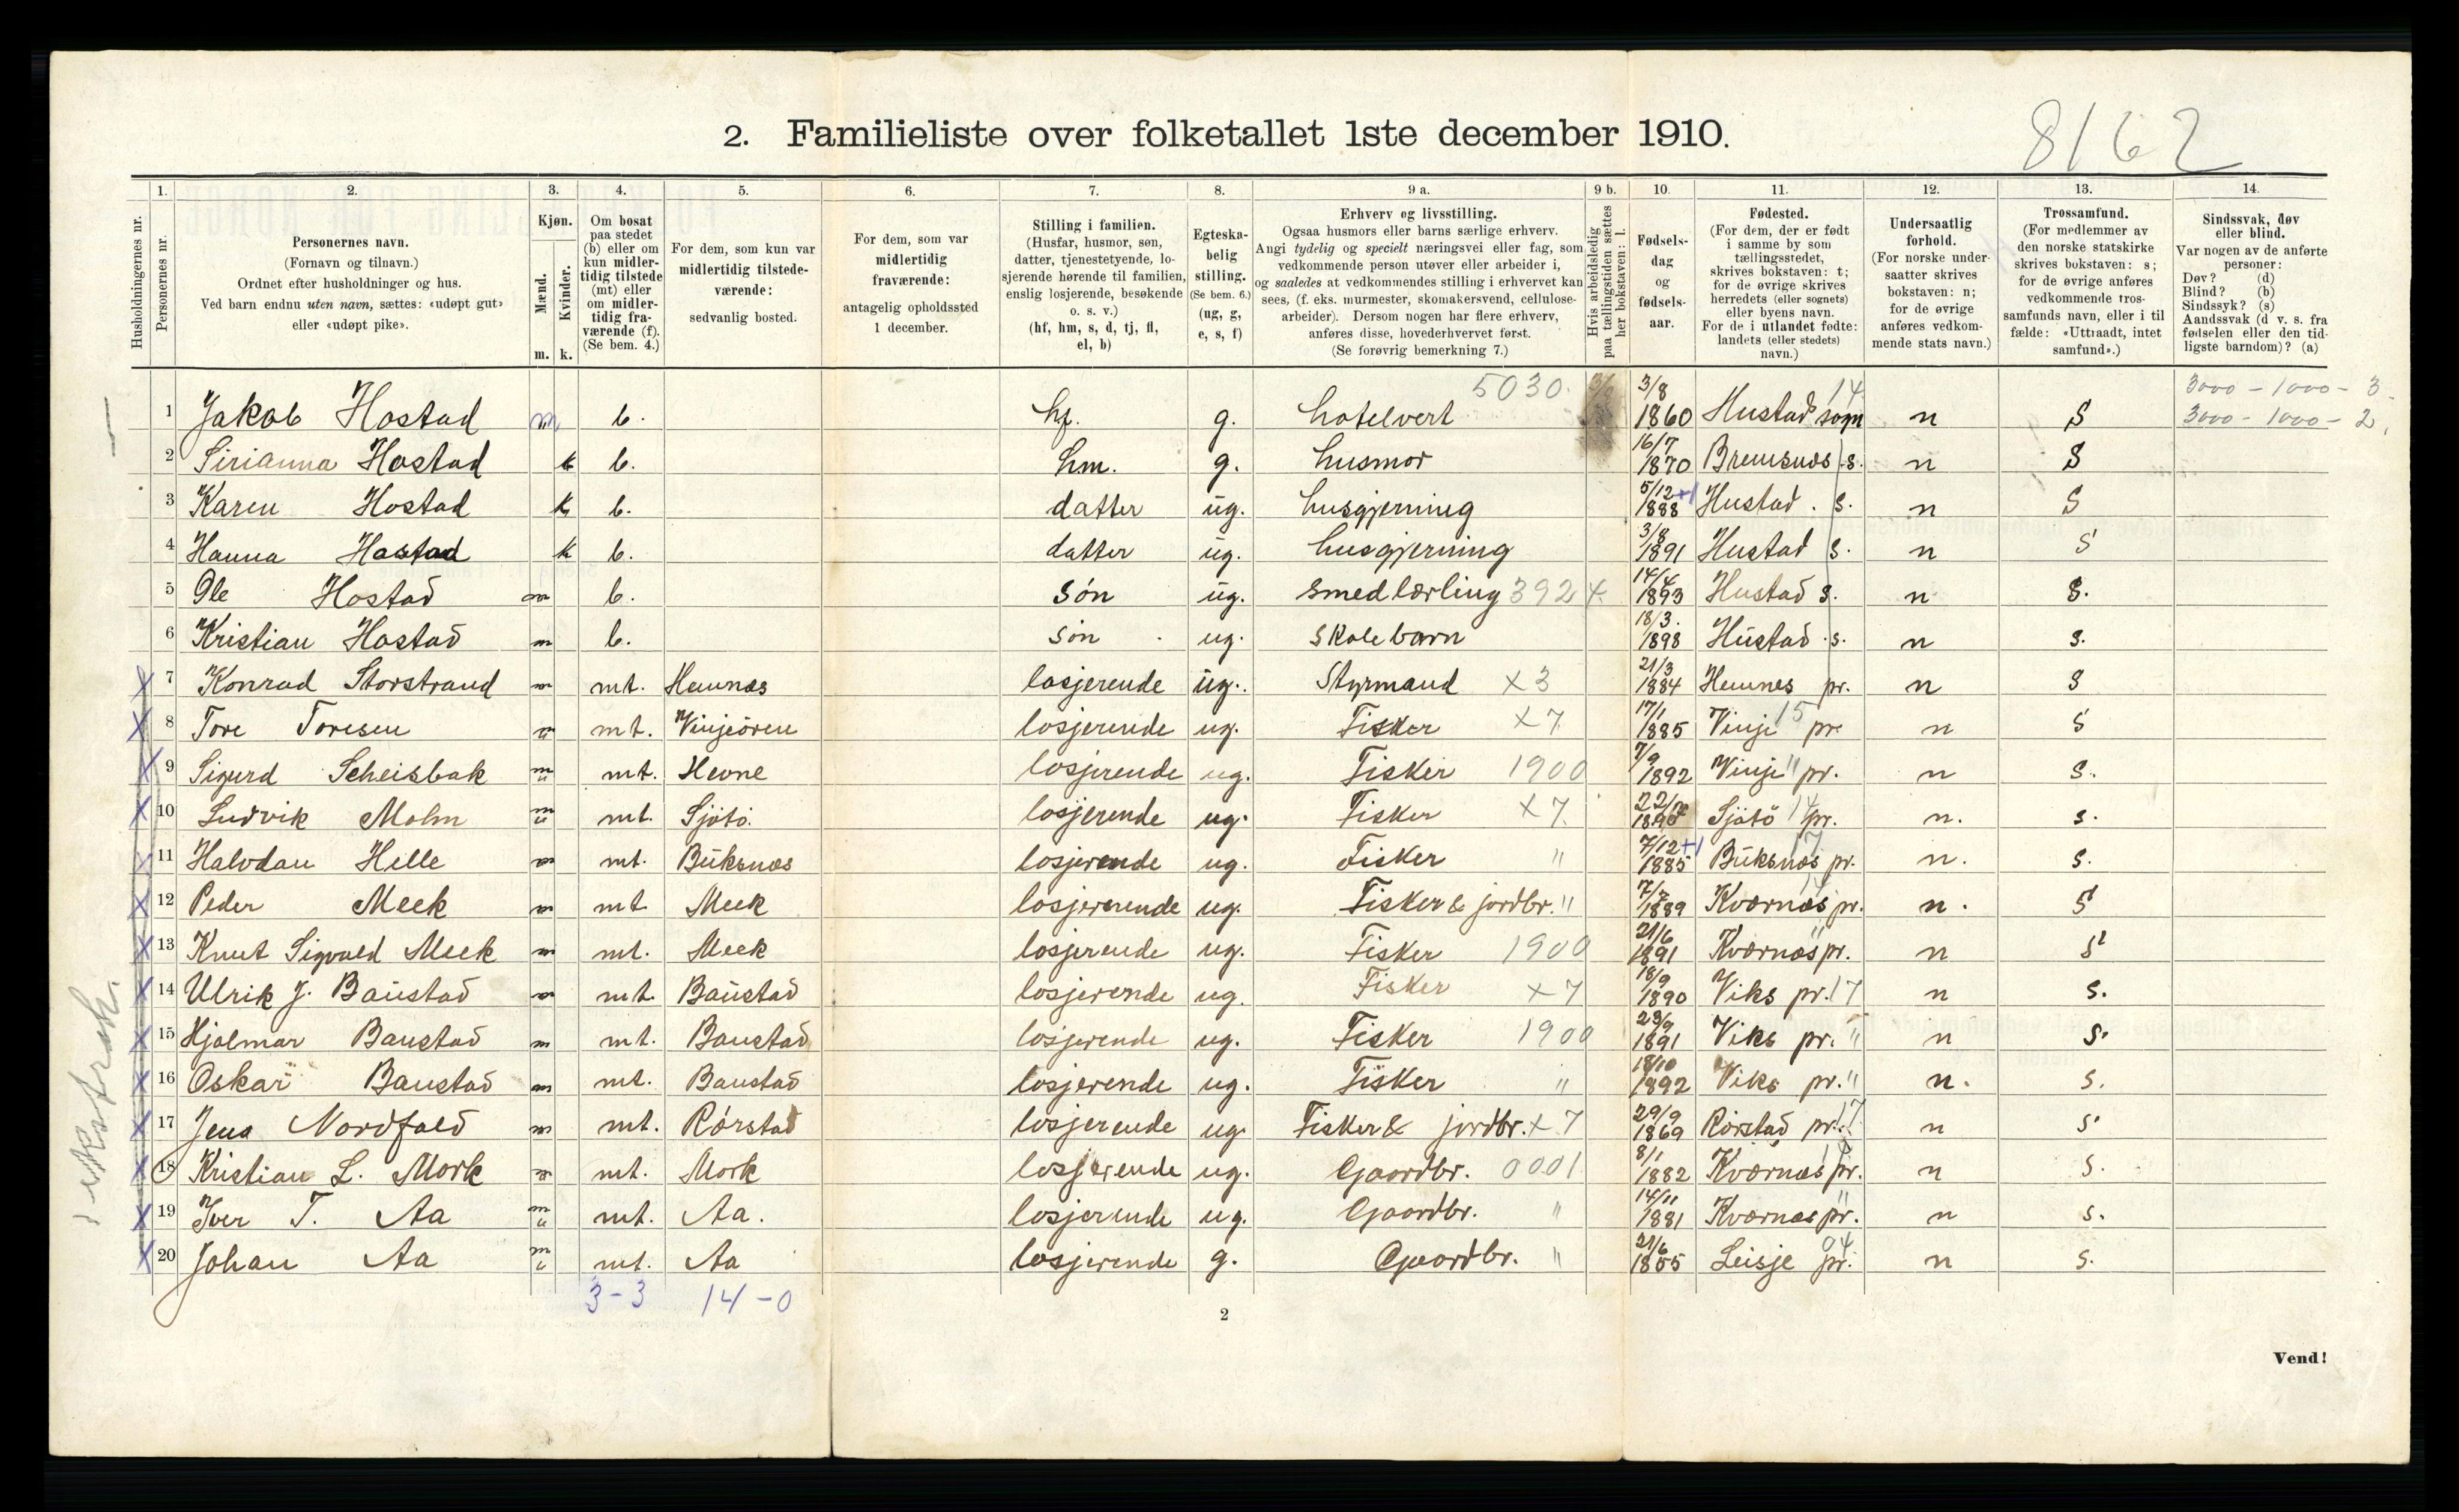 8162
2. Familieliste over folketallet 1ste december 1910.
1. 2. 3. 4. 5. 6. 7. 8. 9 a. 9 b. 10. 11. 12. 13. 14.
Husholdningernes nr.
Personernes nr.
Personernes navn.
(Fornavn og tilnavn.)
Ordnet efter husholdninger og hus.
Ved barn endnu uten navn, sættes: «udøpt gut»
eller «udøpt pike».
Kjøn.
Mænd.
Kvinder.
m. k.
Om bosat
paa stedet
(b) eller om
kun midler-
tidig tilstede
(mt) eller
om midler-
tidig fra-
værende (f).
(Se bem. 4.)
For dem, som kun var
midlertidig tilstede-
værende:
sedvanlig bosted.
For dem, som var
midlertidig
fraværende:
antagelig opholdssted
1 december.
Stilling i familien.
(Husfar, husmor, søn,
datter, tjenestetyende, lo-
sjerende hørende til familien,
enslig losjerende, besøkende
o. s. v.)
(hf, hm, s, d, tj, fl,
el, b)
Egteska-
belig
stilling.
(Se bem. 6.)
(ug, g,
e, s, f)
Erhverv og livsstilling.
Ogsaa husmors eller barns særlige erhverv.
Angi tydelig og specielt næringsvei eller fag, som
vedkommende person utøver eller arbeider i,
og saaledes at vedkommendes stilling i erhvervet kan
sees, (f. eks. murmester, skomakersvend, cellulose-
arbeider). Dersom nogen har flere erhverv,
anføres disse, hovederhvervet først.
(Se forøvrig bemerkning 7.)
Hvis arbeidsledig
paa tællingstiden sættes
her bokstaven: l.
Fødsels-
dag
og
fødsels-
aar.
Fødested.
(For dem, der er født
i samme by som
tællingsstedet,
skrives bokstaven: t;
for de øvrige skrives
herredets (eller sognets)
eller byens navn.
For de i utlandet fødte:
landets (eller stedets)
navn.)
Undersaatlig
forhold.
(For norske under-
saatter skrives
bokstaven: n;
for de øvrige
anføres vedkom-
mende stats navn.)
Trossamfund.
(For medlemmer av
den norske statskirke
skrives bokstaven: s;
for de øvrige anføres
vedkommende tros-
samfunds navn, eller i til
fælde: «Uttraadt, intet
samfund».)
Sindssvak, døv
eller blind.
Var nogen av de anførte
personer:
Døv? (d)
Blind? (b)
Sindssyk? (s)
Aandssvak (d v. s. fra
fødselen eller den tid-
ligste barndom)? (a)
1 Jakob Hostad m b. hf. g. hotelvert 5030. 3/8 1860 Hustad sogn 14 n S 3000 - 1000 - 3 3000 - 1000 - 2.
2 Sirianna Hostad k b. hm. g. husmor 16/7 1870 Bremsnes s. n S
3 Karen Hostad k b. datter ug. husgjerning 5/12 +1 1888 Hustad . s. n S
4 Hanna Hostad k b. datter ug. husgjerning 3/8 1891 Hustad s. n S
5 Ole Hostad m b. søn ug. smedlærling 3924. 14/4 1893 Hustad s. n s.
6 Kristian Hostad m b. søn ug. skolebarn 18/3. 1898 Hustad s. n s.
7 Konrad Storstrand m mt. Hemnes losjerende ug. Styrmand x3 21/3 1884 Hemnes pr. n S
8 Tore Toresen m mt. Vinjeøren losjerende ug. Fisker x7 17/1 1885 Vinje 15 pr n S
9 Sigurd Scheisbak m mt. Hevne losjerende ug. Fisker 1900 7/9 1892 Vinje " pr. n s.
10 Ludvik Molm m mt. losjerende ug. Fisker x7. 14 pr. n. s.
11 Halvdan Hille m mt. Buksnæs losjerende ug. Fisker " 7/12 +1 1885 Buksnæs pr. 17 n. s.
12 Peder Meek m mt Meek losjererende ug. Fisker & jordbr. " 7/7 1889 Kvernæs pr. n. S
13 Knut Sigvald Meek m mt. Meek losjerende ug. Fisker 1900 21/6 1891 Kvernæs pr. n S
14 Ulrik J. Baustad m mt. Baustad losjerende ug. Fisker x7 18/9 1890 Viks pr. 17 n s.
15 Hjalmar Baustad m mt. Baustad losjerende ug. Fisker 1900 23/9 1891 Viks pr. " n s.
16 Oskar Baustad m mt. Baustad losjerende ug. Fisker " 18/10 1892 Viks pr. " n. s.
17 Jens Nordfold m mt. Rørstad losjerende ug. Fisker & jordbr. x7 29/9 1869 Rørstad pr. 17 n s.
18 Kristian L. Mork m mt. Mork losjerende ug. Gaardbr. 0001 8/1 1882 Kvernæs pr. n s.
19 Iver T. Aa m mt. Aa. losjerende ug. Gaardbr. " 14/11 1881 Kvernæs pr. " n s.
20 Johan Aa m mt. Aa losjerende g. Gaardbr. " 21/6 1855 Leisje pr. 04 n s.
3-3 14-0
2
Vend!